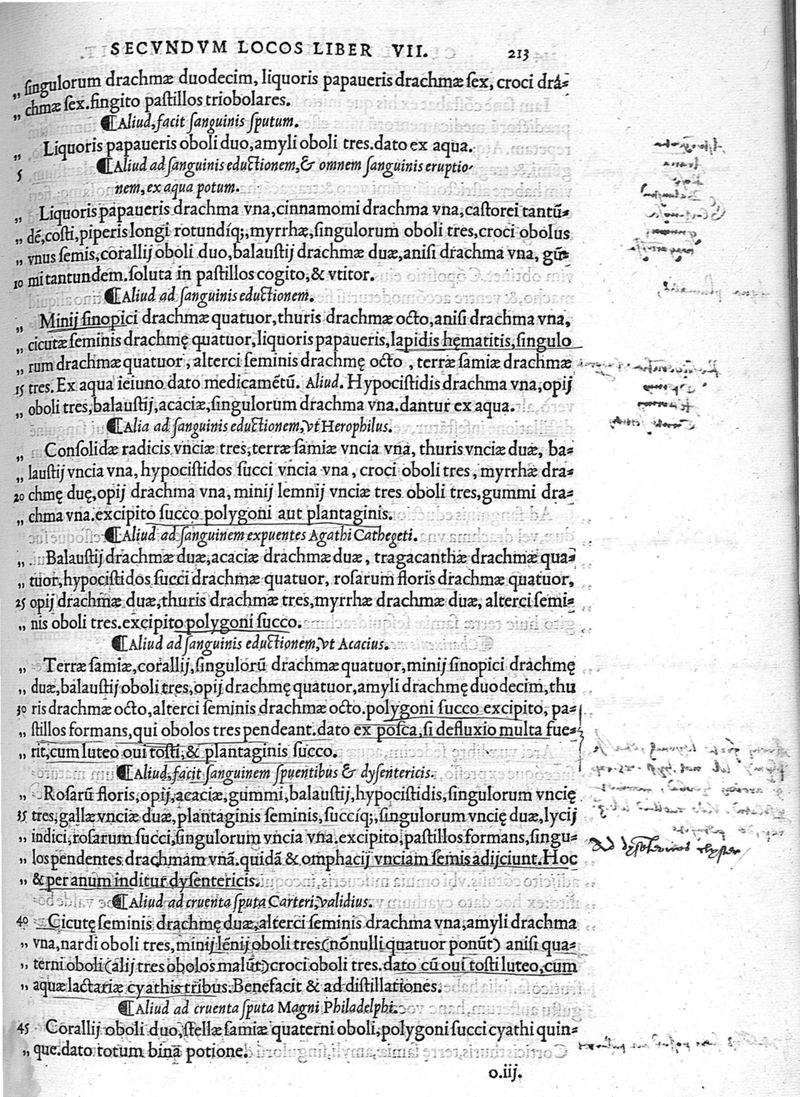 SECVNDVM LOCOS LIBER VII. 213
„ singulorum drachmæ duodecim, liquoris papaueris drachmæ sex, croci drá-
„ chmæ sex. fingito pastillos triobolares.
¶Aliud, facit sanguinis sputum.
„ Liquoris papaueris oboli duo, amyli oboli tres. dato ex aqua.
5 ¶Aliud ad sanguinis eductionem, & omnem sanguinis eruptio-
nem, ex aqua potum.
„ Liquoris papaueris drachma vna, cinnamomi drachma vna, castorei tantũ-
„ dẽ, costi, piperis longi rotundiq;, myrrhæ, singulorum oboli tres, croci obolus
„ vnus semis, corallij oboli duo, balaustij drachmæ duæ, anisi drachma vna, gũ-
10 mi tantundem. soluta in pastillos cogito, & vtitor.
¶Aliud ad sanguinis eductionem.
„ Minij sinopici drachmæ quatuor, thuris drachmæ octo, anisi drachma vna,
„ cicutæ seminis drachmę quatuor, liquoris papaueris, lapidis hęmatitis, singulo
„ rum drachmæ quatuor, alterci seminis drachmę octo, terræ samiæ drachmæ
15 tres. Ex aqua ieiuno dato medicamẽtũ. Aliud. Hypocistidis drachma vna, opij
„ oboli tres, balaustij, acaciæ, singulorum drachma vna. dantur ex aqua.
¶Alia ad sanguinis eductionem, vt Herophilus.
„ Consolidæ radicis vnciæ tres, terræ samiæ vncia vna, thuris vnciæ duæ, ba-
„ laustij vncia vna, hypocistidos succi vncia vna, croci oboli tres, myrrhæ dra-
20 chmę duę, opij drachma vna, minij lemnij vnciæ tres oboli tres, gummi dra-
„ chma vna. excipito succo polygoni aut plantaginis.
¶Aliud ad sanguinem expuentes Agathi Cathegeti.
„ Balaustij drachmæ duæ, acaciæ drachmæ duæ, tragacanthæ drachmæ qua-
„ tuor, hypocistidos succi drachmæ quatuor, rosarum floris drachmæ quatuor,
25 opij drachmæ duæ, thuris drachmæ tres, myrrhæ drachmæ duæ, alterci semi-
„ nis oboli tres. excipito polygoni succo.
¶Aliud ad sanguinis eductionem, vt Acacius.
„ Terræ samiæ, corallij, singulorũ drachmæ quatuor, minij sinopici drachmę
„ duæ, balaustij oboli tres, opij drachmę quatuor, amyli drachmę duodecim, thu
30 ris drachmæ octo, alterci seminis drachmæ octo. polygoni succo excipito, pa-
„ stillos formans, qui obolos tres pendeant. dato ex posca, si defluxio multa fue-
„ rit, cum luteo oui tosti, & plantaginis succo.
¶Aliud, facit sanguinem spuentibus & dysentericis.
„ Rosarũ floris, opij, acaciæ, gummi, balaustij, hypocistidis, singulorum vncię
35 tres, gallæ vnciæ duæ, plantaginis seminis, succiq;, singulorum vncię duæ, lycij
„ indici, rosarum succi, singulorum vncia vna. excipito, pastillos formans, singu-
„ los pendentes drachmam vnã. quidã & omphacij vnciam semis adijciunt. Hoc
„ & per anum inditur dysentericis.
¶Aliud ad cruenta sputa Carteri, validius.
40 Cicutę seminis drachmę duæ, alterci seminis drachma vna, amyli drachma
„ vna, nardi oboli tres, minij lẽnij oboli tres (nõnulli quatuor ponũt) anisi qua-
„ terni oboli (alij tres obolos malũt) croci oboli tres. dato cũ oui tosti luteo, cum
„ aquæ lactariæ cyathis tribus. Benefacit & ad distillationes.
¶Aliud ad cruenta sputa Magni Philadelphi.
45 Corallij oboli duo, stellæ samiæ quaterni oboli, polygoni succi cyathi quin-
„ que. dato totum bina potione.
o.iij.